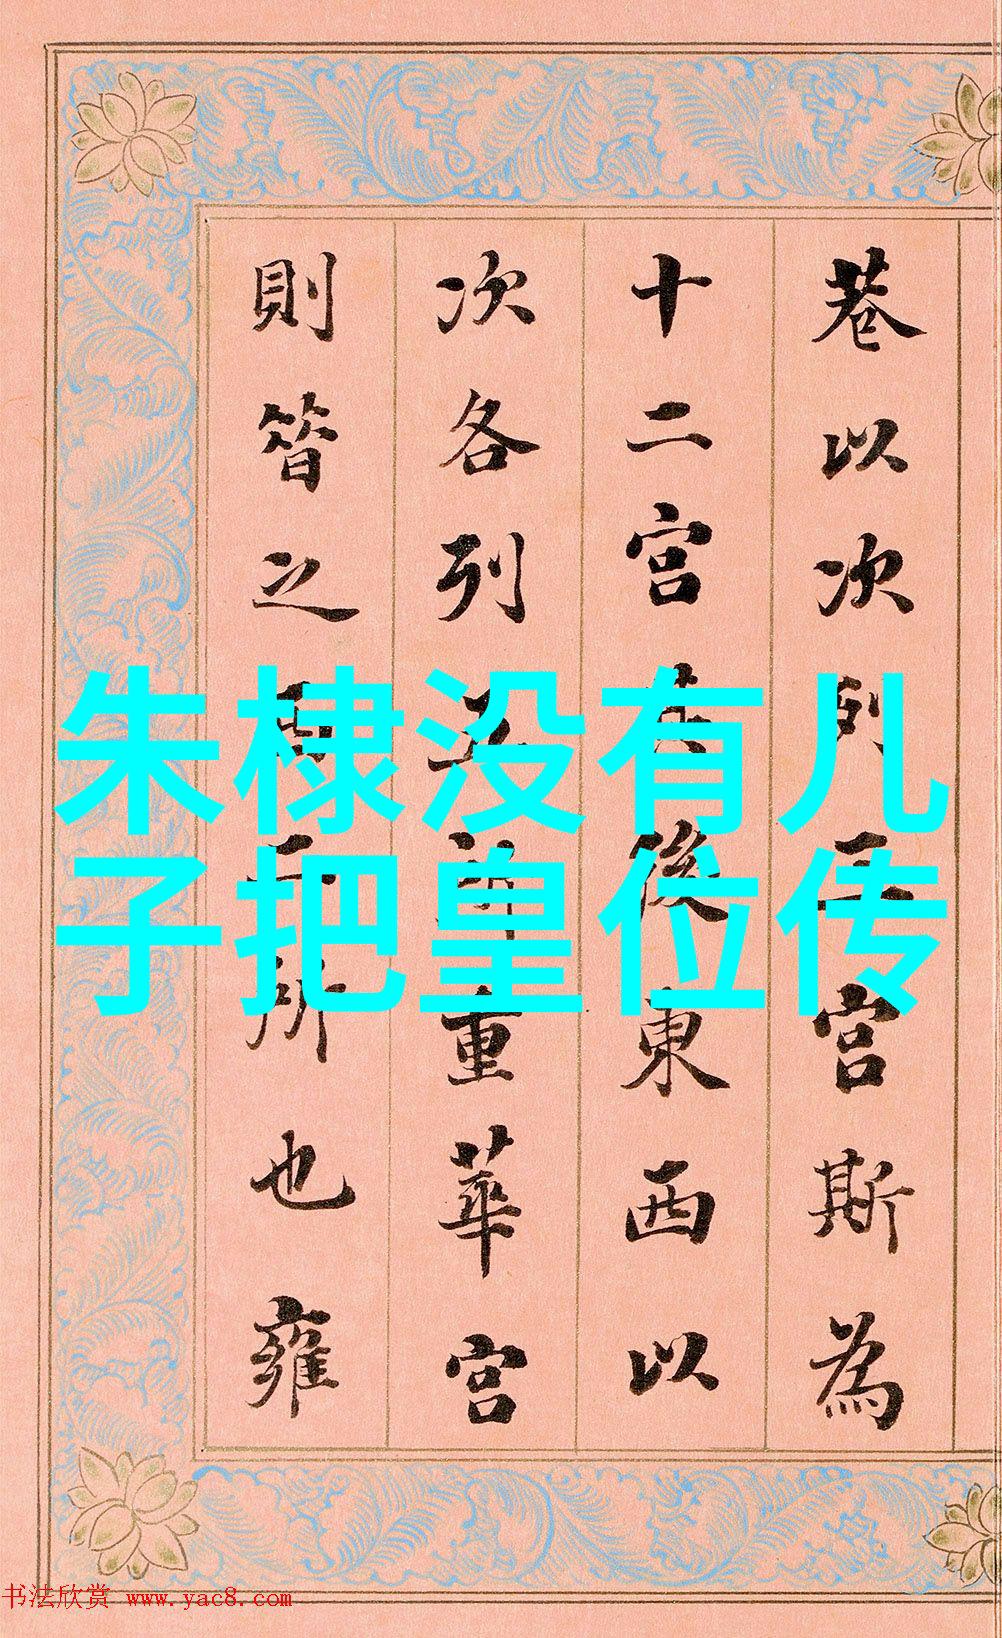 巷以次列五宫斯為
十二宫其後東西以
次各列五所重華宫
則昔之西二所也雍
朱棣没有儿
子把皇位传
书法欣赏 www.yac8.com